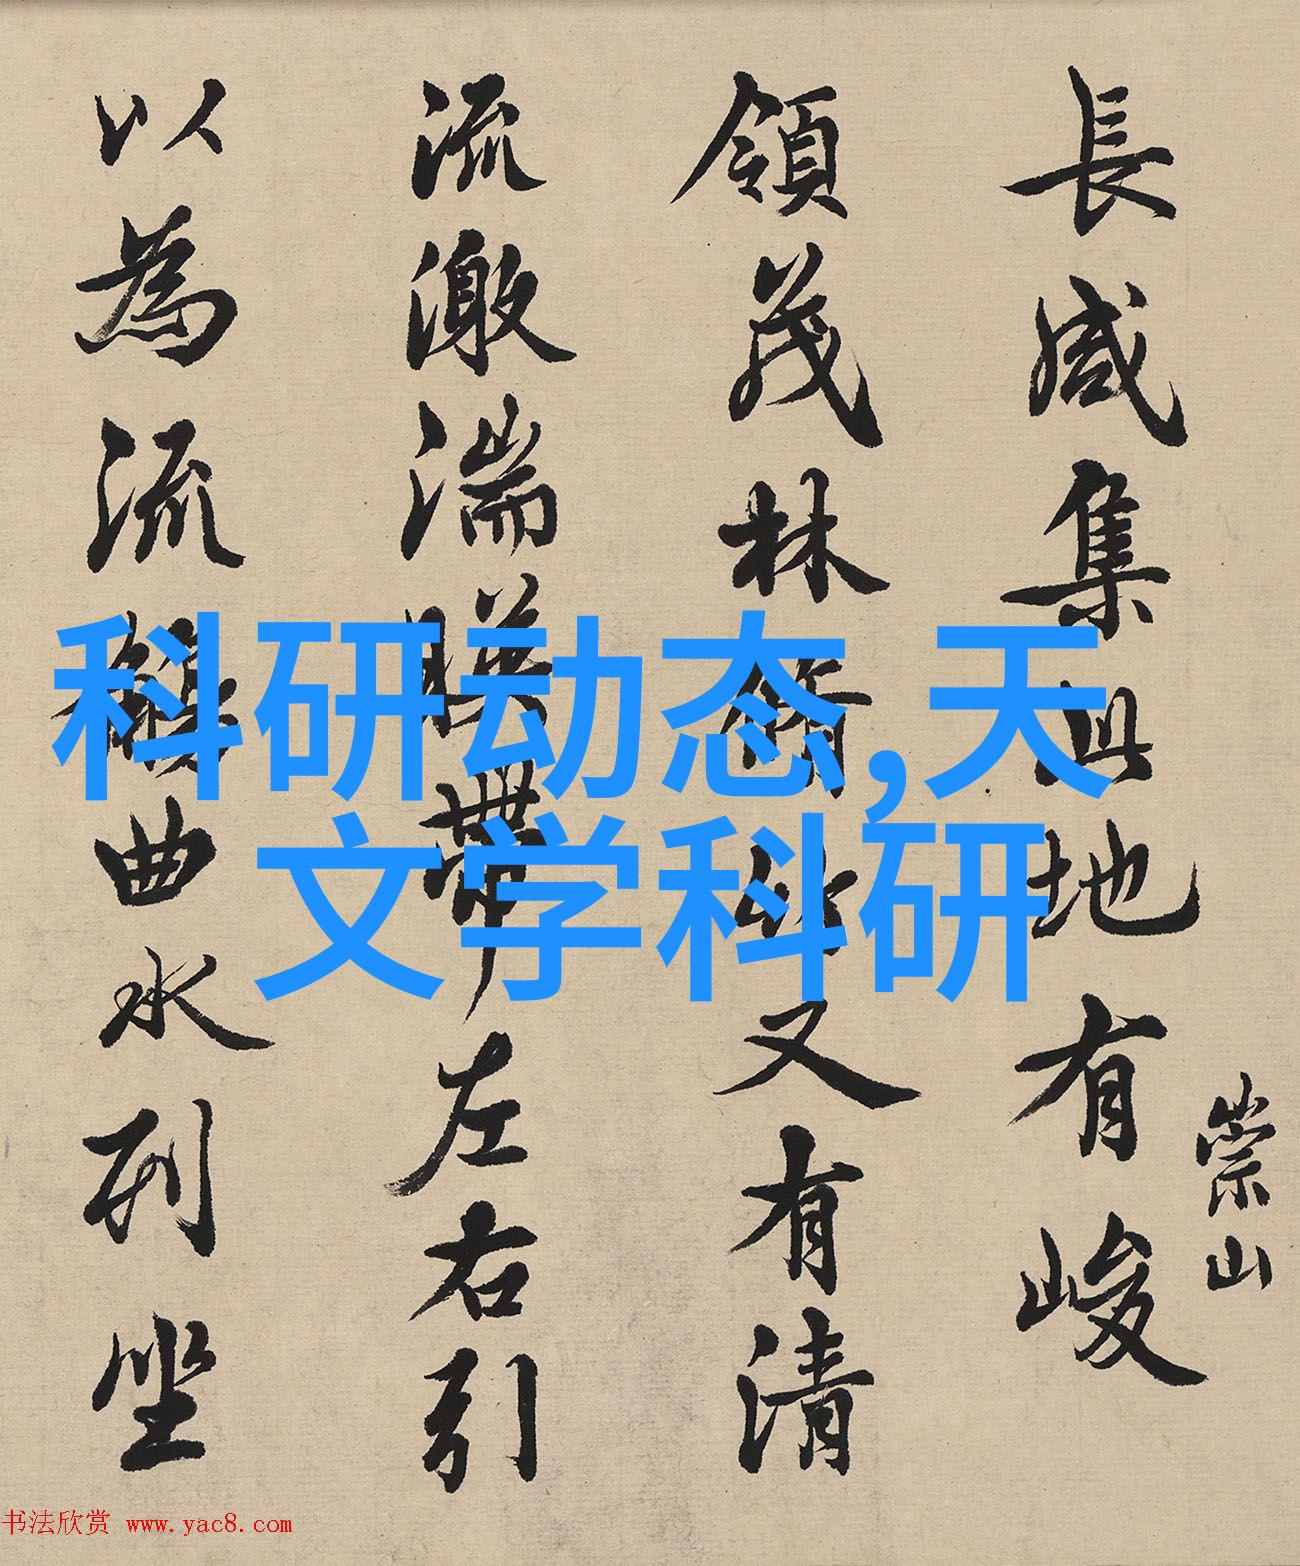 長咸集此地有峻
崇山
領茂林脩竹又有清
流激湍暎帶左右引
以為流觴曲水列坐
科研动态,天
文学科研
书法欣赏 www.yac8.com